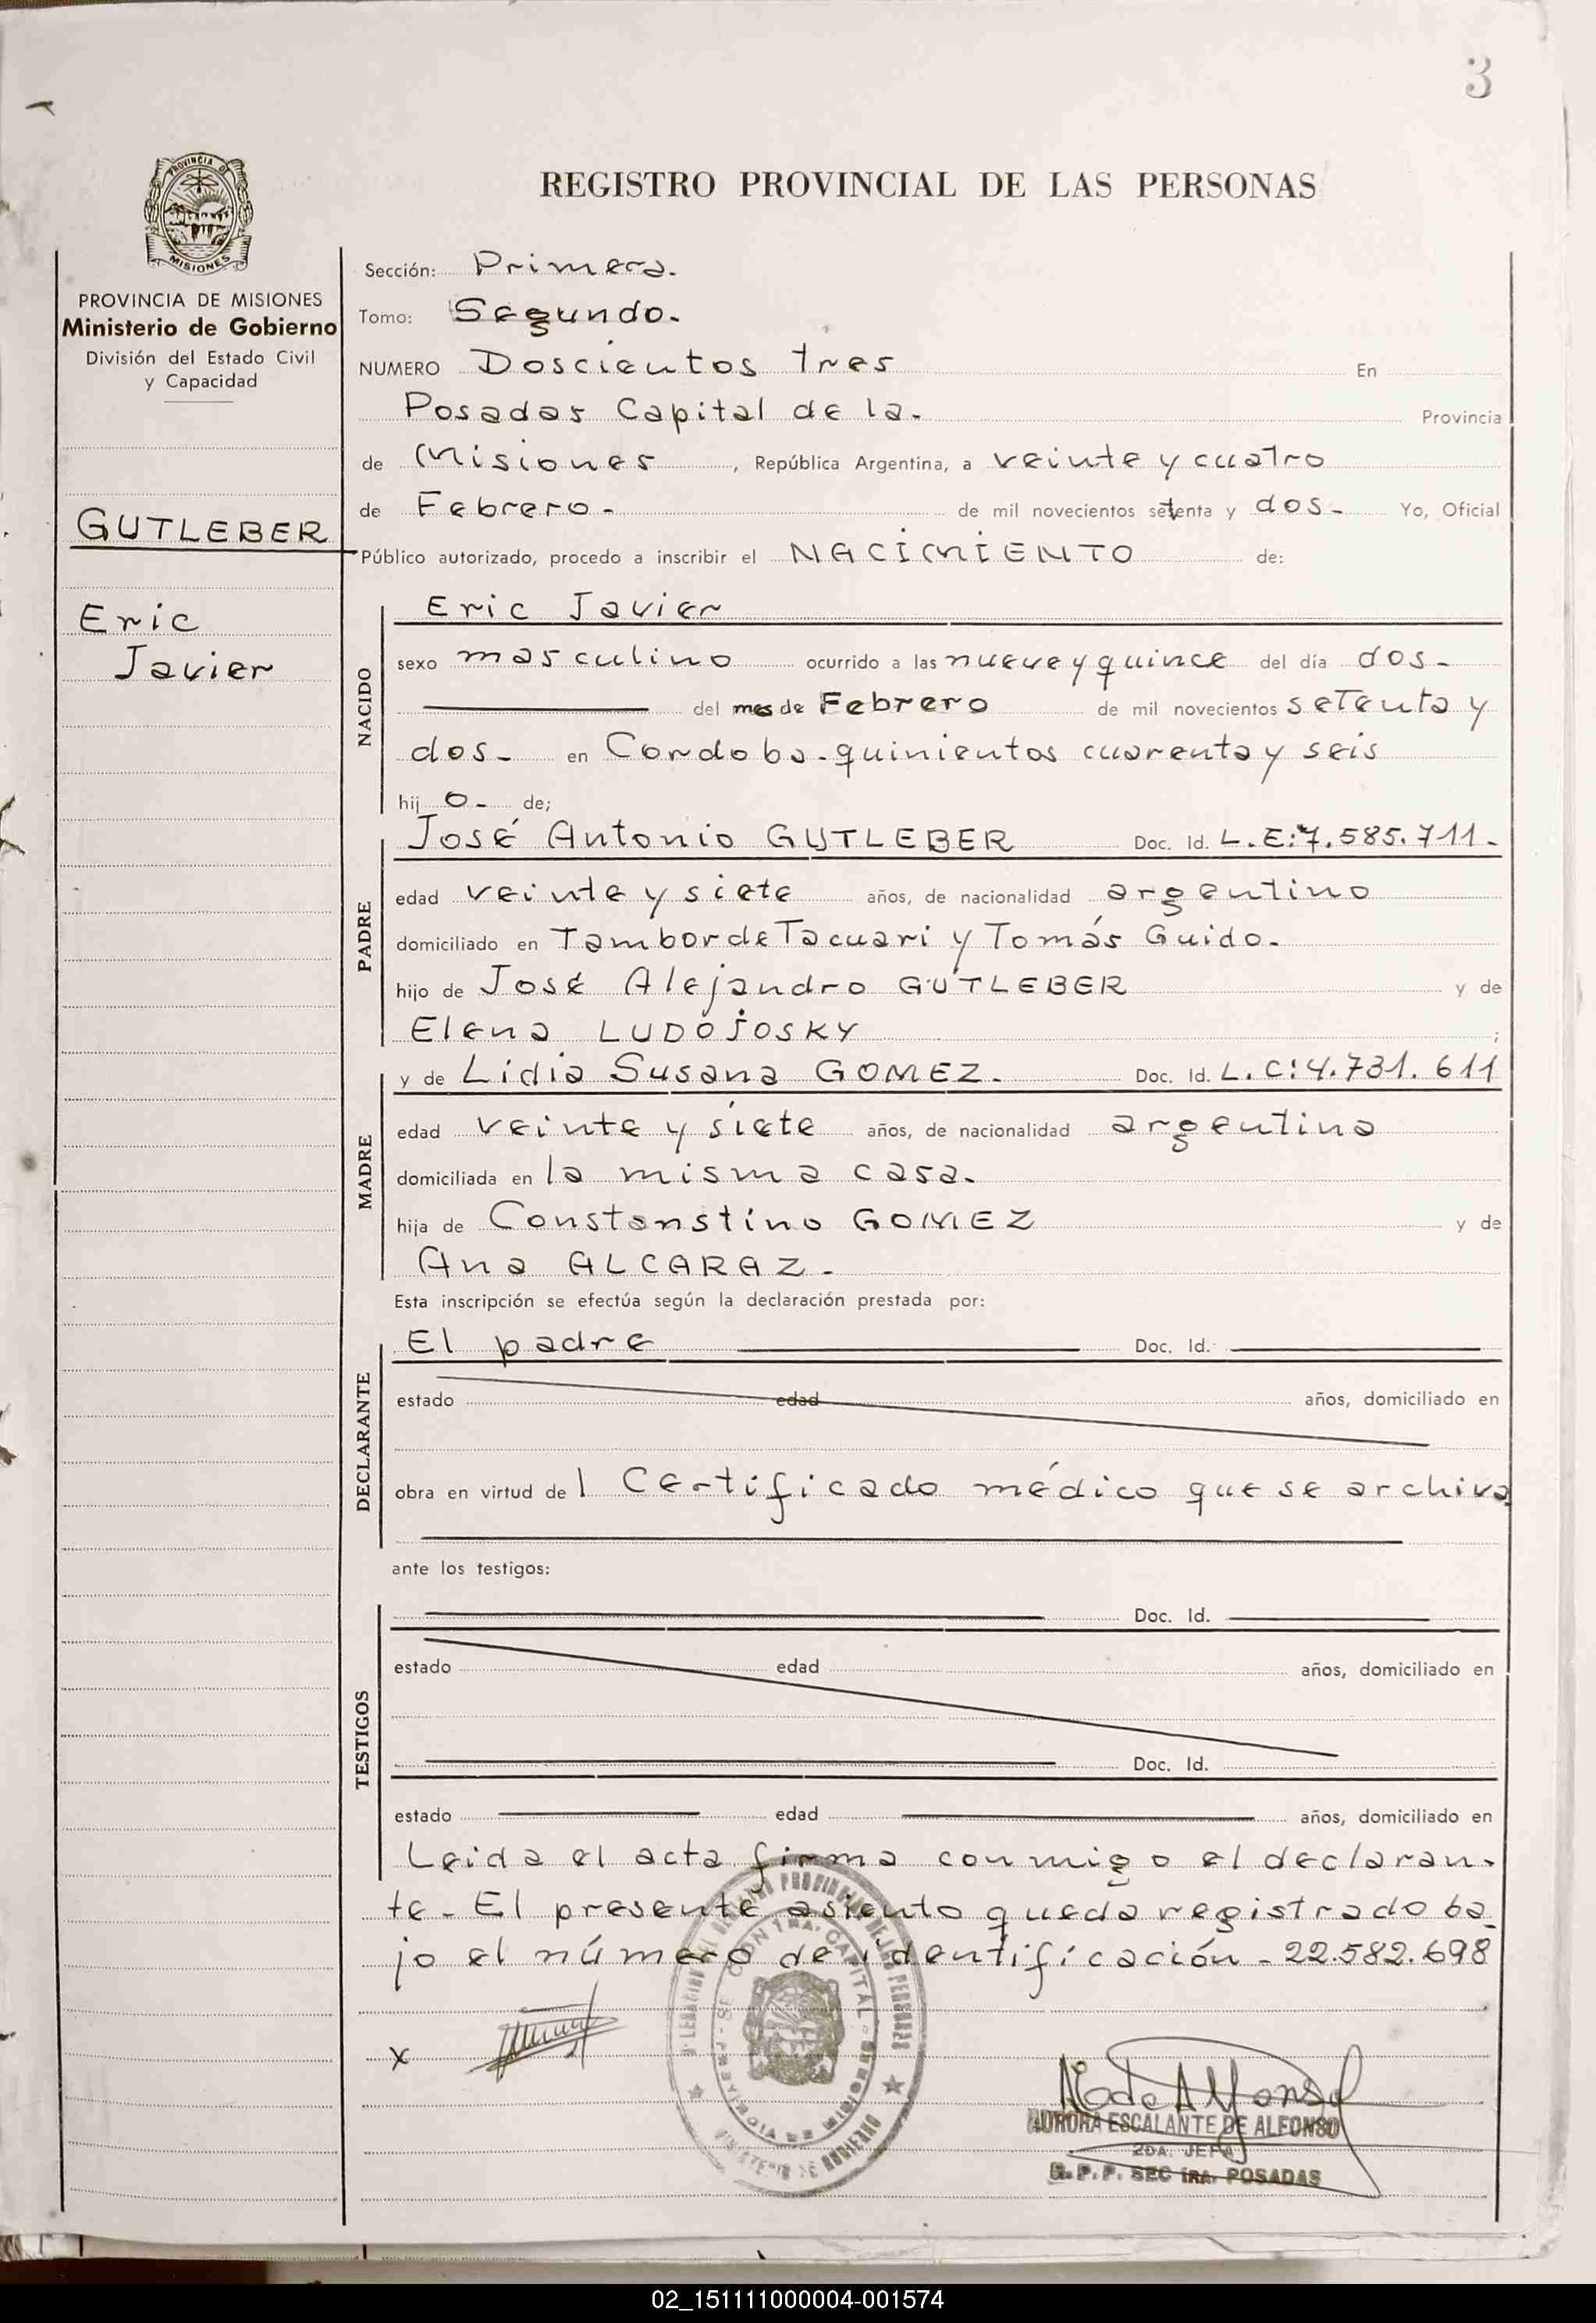 3
PROVINCIA DE
MISIONES
PROVINCIA DE MISIONES
Ministerio de Gobierno
División del Estado Civil
y Capacidad
GUTLEBER
Eric
Javier
REGISTRO PROVINCIAL DE LAS PERSONAS
Sección: Primera.
Tomo: Segundo.
NUMERO Doscientos tres En
Posadas Capital de la. Provincia
de Misiones, República Argentina, a veinte y cuatro
de Febrero. de mil novecientos setenta y dos. Yo, Oficial
Público autorizado, procedo a inscribir el NACIMIENTO de:
NACIDO
Eric Javier
sexo masculino ocurrido a las nueve y quince del día dos.
del mes de Febrero de mil novecientos setenta y
dos. en Cordoba. quinientos cuarenta y seis
hijo. de;
PADRE
José Antonio GUTLEBER Doc. Id. L.E:7.585.711.
edad veinte y siete años, de nacionalidad argentino
domiciliado en Tambor de Tacuari y Tomás Guido.
hijo de José Alejandro GUTLEBER y de
Elena LUDOJOSKY ;
MADRE
y de Lidia Susana GOMEZ. Doc. Id. L.C:4.731.611
edad veinte y siete años, de nacionalidad argentina
domiciliada en la misma casa.
hija de Constanstino GOMEZ y de
Ana ALCARAZ.
Esta inscripción se efectúa según la declaración prestada por:
DECLARANTE
El padre Doc. Id.
estado edad años, domiciliado en
obra en virtud del Certificado médico que se archiva
ante los testigos:
TESTIGOS
Doc. Id.
estado edad años, domiciliado en
Doc. Id.
estado edad años, domiciliado en
Leida el acta firma conmigo el declaran-
te. El presente asiento queda registrado ba-
jo el número de identificación - 22.582.698
x
REGISTRO PROVINCIAL DE LAS PERSONAS
SECCION 1RA. CAPITAL
PROVINCIA DE MISIONES
MINISTERIO DE GOBIERNO
A E de Alfonso
AURORA ESCALANTE DE ALFONSO
2DA. JEFA
R.P.P. SEC 1RA. POSADAS
02_151111000004-001574